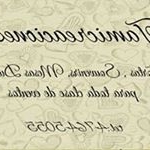 Tamicreaciones
Souvenirs, Mesas
para toda clase de eventos
4764.5055